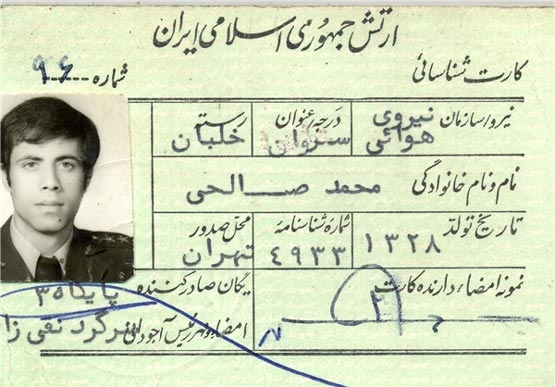 ارتش جمهوری اسلامی ایران
کارت شناسائی
شماره ۹۶
نیرو/سازمان نیروی هوائی
درجه/عنوان ستوان
رسته خلبان
نام و نام خانوادگی محمد صالحی
تاریخ تولد ۱۳۲۸
شماره شناسنامه ۴۹۳۳
محل صدور تهران
نمونه امضاء دارنده کارت
یگان صادرکننده پایگاه ۳
امضاء و مهر رئیس آجودانی سرگرد نقی زا